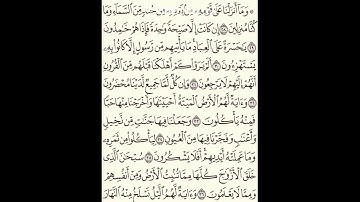 ۞ وَمَآ أَنزَلْنَا عَلَىٰ قَوْمِهِۦ مِنۢ بَعْدِهِۦ مِن جُندٍ مِّنَ ٱلسَّمَآءِ وَمَا
كُنَّا مُنزِلِينَ ۝٢٨ إِن كَانَتْ إِلَّا صَيْحَةً وَٰحِدَةً فَإِذَا هُمْ خَٰمِدُونَ
۝٢٩ يَٰحَسْرَةً عَلَى ٱلْعِبَادِ ۚ مَا يَأْتِيهِم مِّن رَّسُولٍ إِلَّا كَانُوا۟ بِهِۦ
يَسْتَهْزِءُونَ ۝٣٠ أَلَمْ يَرَوْا۟ كَمْ أَهْلَكْنَا قَبْلَهُم مِّنَ ٱلْقُرُونِ
أَنَّهُمْ إِلَيْهِمْ لَا يَرْجِعُونَ ۝٣١ وَإِن كُلٌّ لَّمَّا جَمِيعٌ لَّدَيْنَا مُحْضَرُونَ
۝٣٢ وَءَايَةٌ لَّهُمُ ٱلْأَرْضُ ٱلْمَيْتَةُ أَحْيَيْنَٰهَا وَأَخْرَجْنَا مِنْهَا حَبًّا
فَمِنْهُ يَأْكُلُونَ ۝٣٣ وَجَعَلْنَا فِيهَا جَنَّٰتٍ مِّن نَّخِيلٍ
وَأَعْنَٰبٍ وَفَجَّرْنَا فِيهَا مِنَ ٱلْعُيُونِ ۝٣٤ لِيَأْكُلُوا۟ مِن ثَمَرِهِۦ
وَمَا عَمِلَتْهُ أَيْدِيهِمْ ۖ أَفَلَا يَشْكُرُونَ ۝٣٥ سُبْحَٰنَ ٱلَّذِى
خَلَقَ ٱلْأَزْوَٰجَ كُلَّهَا مِمَّا تُنۢبِتُ ٱلْأَرْضُ وَمِنْ أَنفُسِهِمْ
وَمِمَّا لَا يَعْلَمُونَ ۝٣٦ وَءَايَةٌ لَّهُمُ ٱلَّيْلُ نَسْلَخُ مِنْهُ ٱلنَّهَارَ